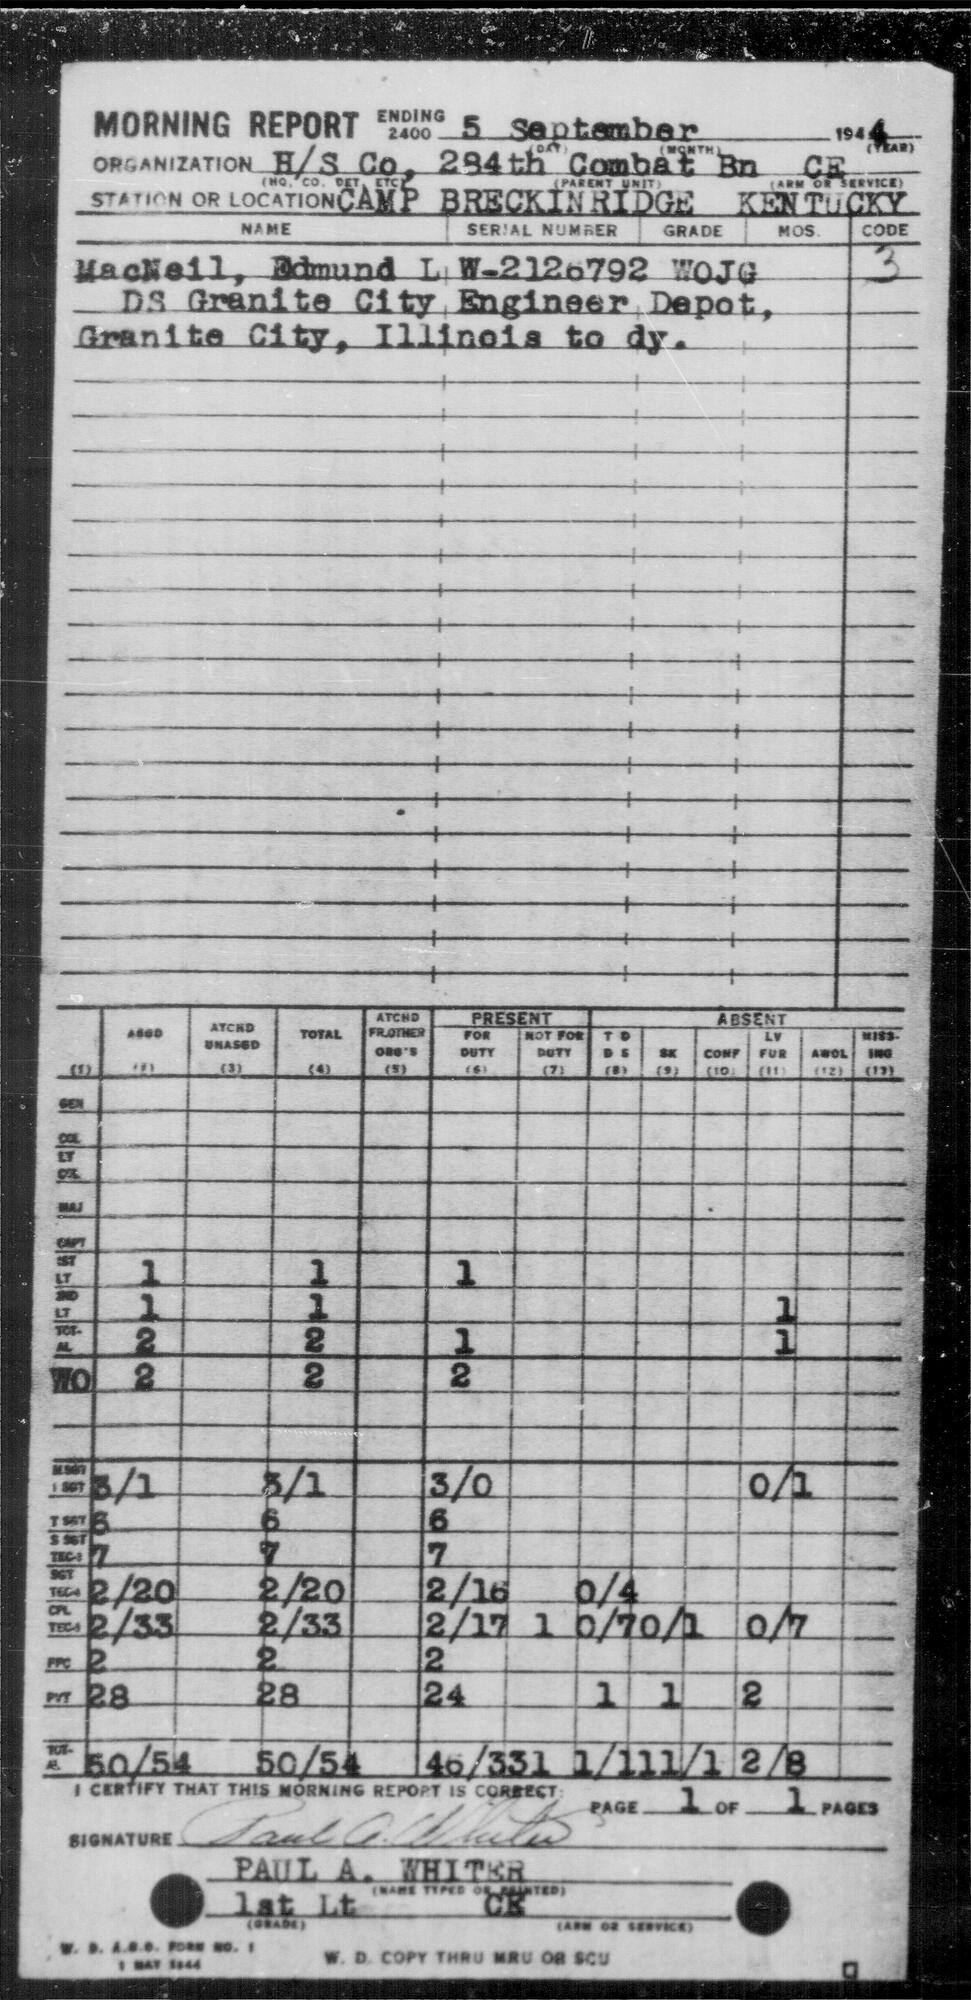 MORNING REPORT ENDING 2400 5 September 1944
(DAY) (MONTH) (YEAR)
ORGANIZATION H/S Co, 284th Combat Bn CE
(HQ, CO, DET, ETC) (PARENT UNIT) (ARM OR SERVICE)
STATION OR LOCATION CAMP BRECKINRIDGE KENTUCKY
NAME SERIAL NUMBER GRADE MOS. CODE
MacNeil, Edmund L W-2126792 WOJG 3
DS Granite City Engineer Depot,
Granite City, Illinois to dy.
PRESENT ABSENT
ASGD ATCHD UNASGD TOTAL ATCHD FR.OTHER ORG'S FOR DUTY NOT FOR DUTY T D D S SK CONF LV FUR AWOL MISSING
(1) (2) (3) (4) (5) (6) (7) (8) (9) (10) (11) (12) (13)
GEN
COL
LT COL
MAJ
CAPT
1ST LT 1 1 1
2ND LT 1 1 1
TOTAL 2 2 1 1
WO 2 2 2
M SGT 1 SGT 3/1 3/1 3/0 0/1
T SGT 6 6 6
S SGT TEC-3 7 7 7
SGT TEC-4 2/20 2/20 2/16 0/4
CPL TEC-5 2/33 2/33 2/17 1 0/7 0/1 0/7
PFC 2 2 2
PVT 28 28 24 1 1 2
TOTAL 50/54 50/54 46/33 1 1/11 1/1 2/8
I CERTIFY THAT THIS MORNING REPORT IS CORRECT:
PAGE 1 OF 1 PAGES
SIGNATURE Paul A. Whiter
PAUL A. WHITER
(NAME TYPED OR PRINTED)
1st Lt CE
(GRADE) (ARM OR SERVICE)
W. D. A.G.O. FORM NO. 1
1 MAY 1944
W. D. COPY THRU MRU OR SCU